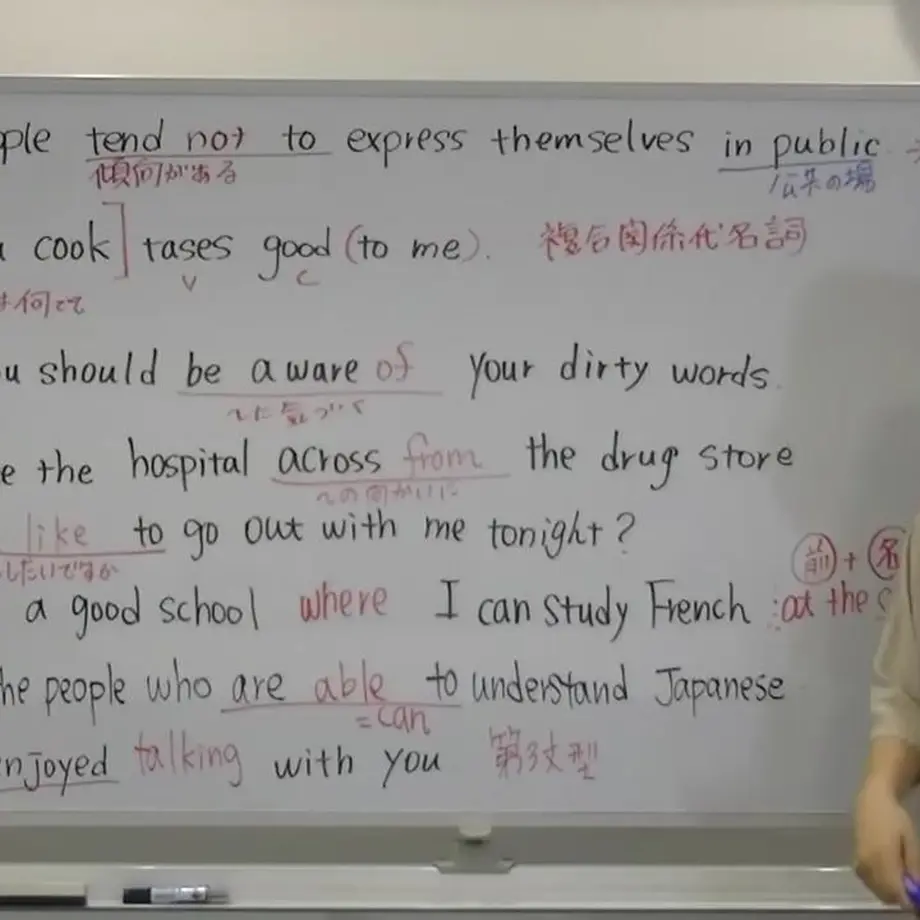 ple tend not to express themselves in public
傾向がある 公衆の場
a cook] tases good (to me). 複合関係代名詞
V C
は何でも
u should be aware of your dirty words.
〜に気づく
e the hospital across from the drug store
〜の向かいに
like to go out with me tonight?
したいですか
前 + 名
a good school where I can study French : at the s
he people who are able to understand Japanese
=can
njoyed talking with you 第3文型